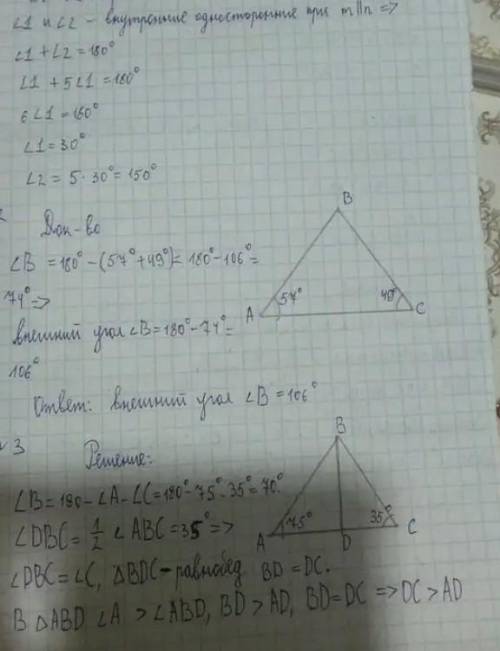 ∠1 и ∠2 – внутренние односторонние при m∥n =>
∠1 + ∠2 = 180°
∠1 + 5∠1 = 180°
6∠1 = 180°
∠1 = 30°
∠2 = 5 · 30° = 150°
Док-во
∠B = 180° – (57° + 49°) = 180° – 106° =
74° =>
внешний угол ∠B = 180° – 74° =
106°
Ответ: внешний угол ∠B = 106°
B
A
57°
49°
C
3
Решение:
∠B = 180 – ∠A – ∠C = 180° – 75° – 35° = 70°.
∠DBC = 1/2 ∠ABC = 35° =>
∠DBC = ∠C, △BDC – равнобед BD = DC.
В △ABD ∠A > ∠ABD, BD > AD, BD = DC => DC > AD
B
A
75°
D
35°
C